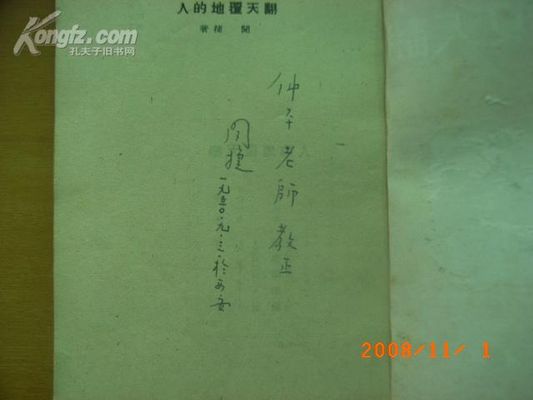 Kongfz.com
孔夫子旧书网
翻天覆地的人
閔 捷 著
仲平老師教正
闵捷
一九五〇.九.三於西安
2008/11/ 1